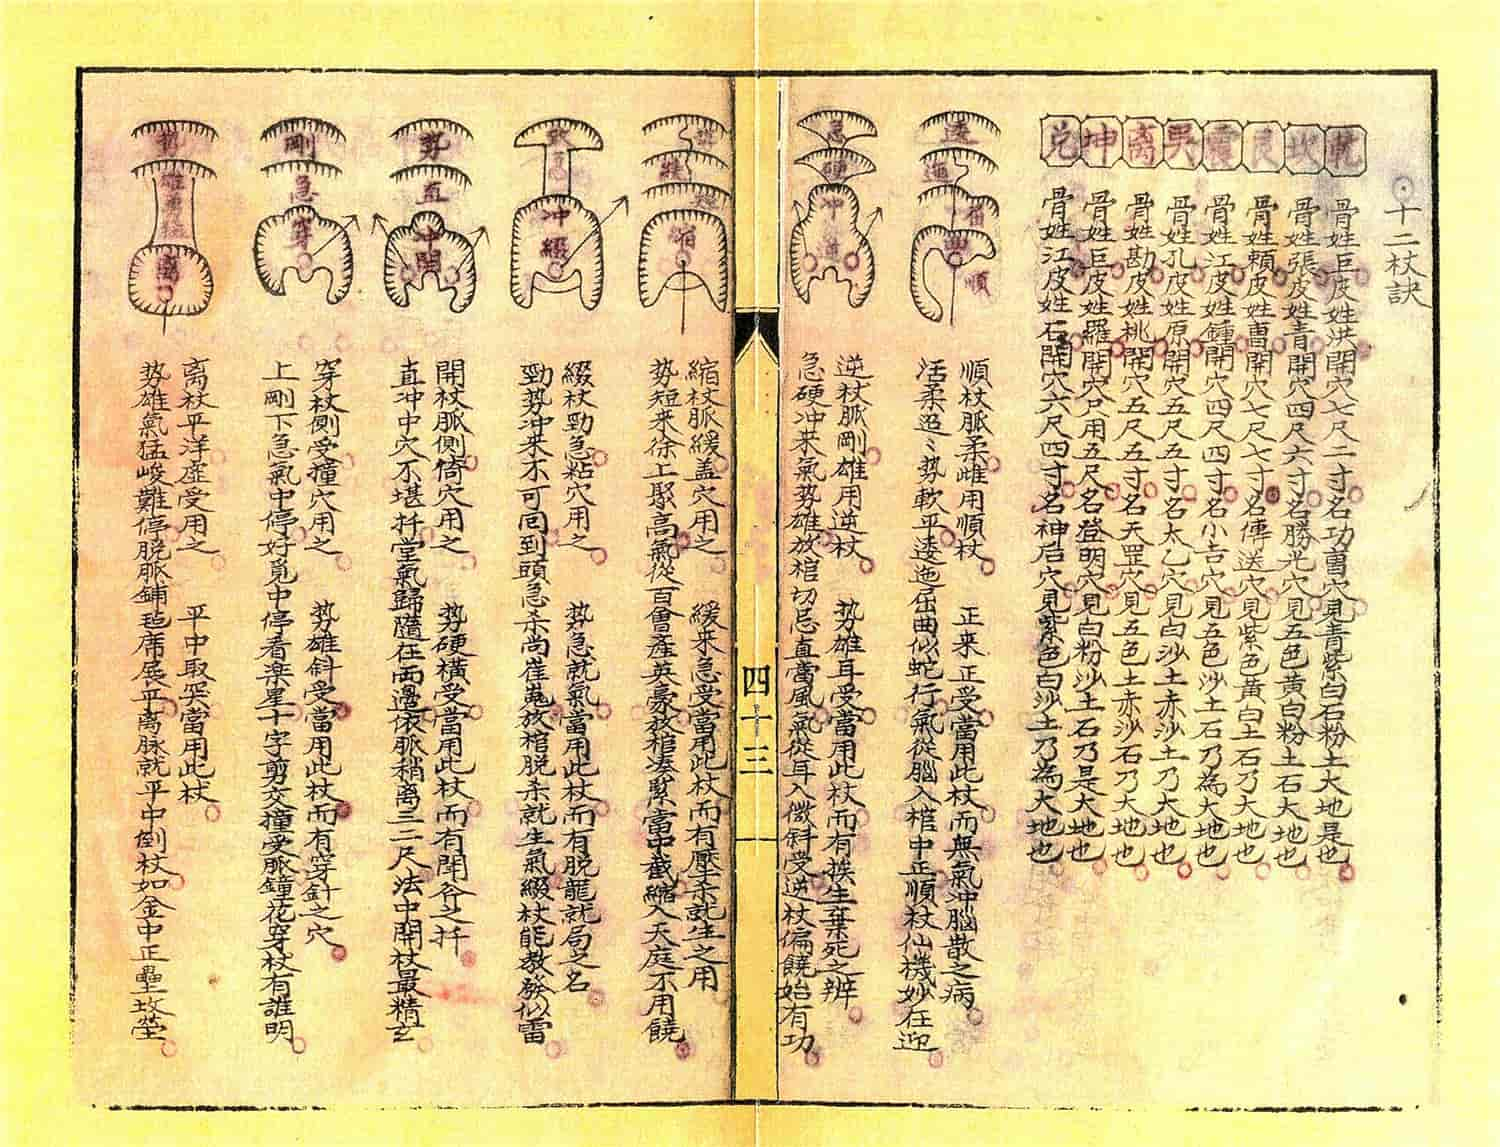 十二杖訣
乾 骨姓巨皮姓洪開穴七尺二寸名功曹穴見青紫白石粉土大地是也
坎 骨姓張皮姓青開穴四尺六寸名勝光穴見五色黄白粉土石大地也
艮 骨姓賴皮姓曹開穴七尺七寸名傳送穴見紫色黃白土石乃大地也
震 骨姓江皮姓鍾開穴四尺四寸名小吉穴見五色沙土石乃為大地也
巽 骨姓孔皮姓原開穴五尺五寸名太乙穴見白沙土赤沙土乃大地也
离 骨姓勘皮姓桃開穴五尺五寸名天罡穴見五色土赤沙石乃大地也
坤 骨姓巨皮姓羅開穴只用五尺名登明穴見白粉沙土石乃是大地也
兑 骨姓江皮姓石開穴六尺四寸名神后穴見紫色白沙土乃為大地也
逶
迤
屈
曲
順
順杖脈柔雌用順杖 正来正受當用此杖而無氣冲腦散之病
活柔迢〻勢軟平逶迤屈曲似蛇行氣從腦入棺中正順杖仙機妙在迎
急
硬
冲
逆杖脈剛雄用逆杖 势雄耳受當用此杖而有挨生棄死之辨
急硬冲来氣势雄放棺切忌直當風氣從耳入微斜受逆杖偏饒始有功
势
短
縮
縮杖脈緩盖穴用之 緩来急受當用此杖而有壓杀就生之用
势短来徐上聚高氣從百會產英豪放棺湊緊當中截縮入天庭不用饒
四十三
势
急
冲
綴
綴杖勁急粘穴用之 势急就氣當用此杖而有脱龍就局之名
勁势冲来不可囘到頭急杀尚崔嵬放棺脱杀就生氣綴杖能教發似雷
势
直
冲
開
開杖脈側倚穴用之 势硬橫受當用此杖而有開斧之扦
直冲中穴不堪扦堂氣歸隨在兩邊依脈稍离三二尺法中開杖最精玄
剛
急
穿
穿杖側受撞穴用之 势雄斜受當用此杖而有穿針之穴
上剛下急氣中停好覓中停看楽星十字剪交撞受脈鐘花穿杖有誰明
势
雄
氣
猛
离
离杖平洋虛受用之 平中取突當用此杖
势雄氣猛峻難停脱脈鋪毡席展平离脉就平中倒杖如金中正壘坟塋